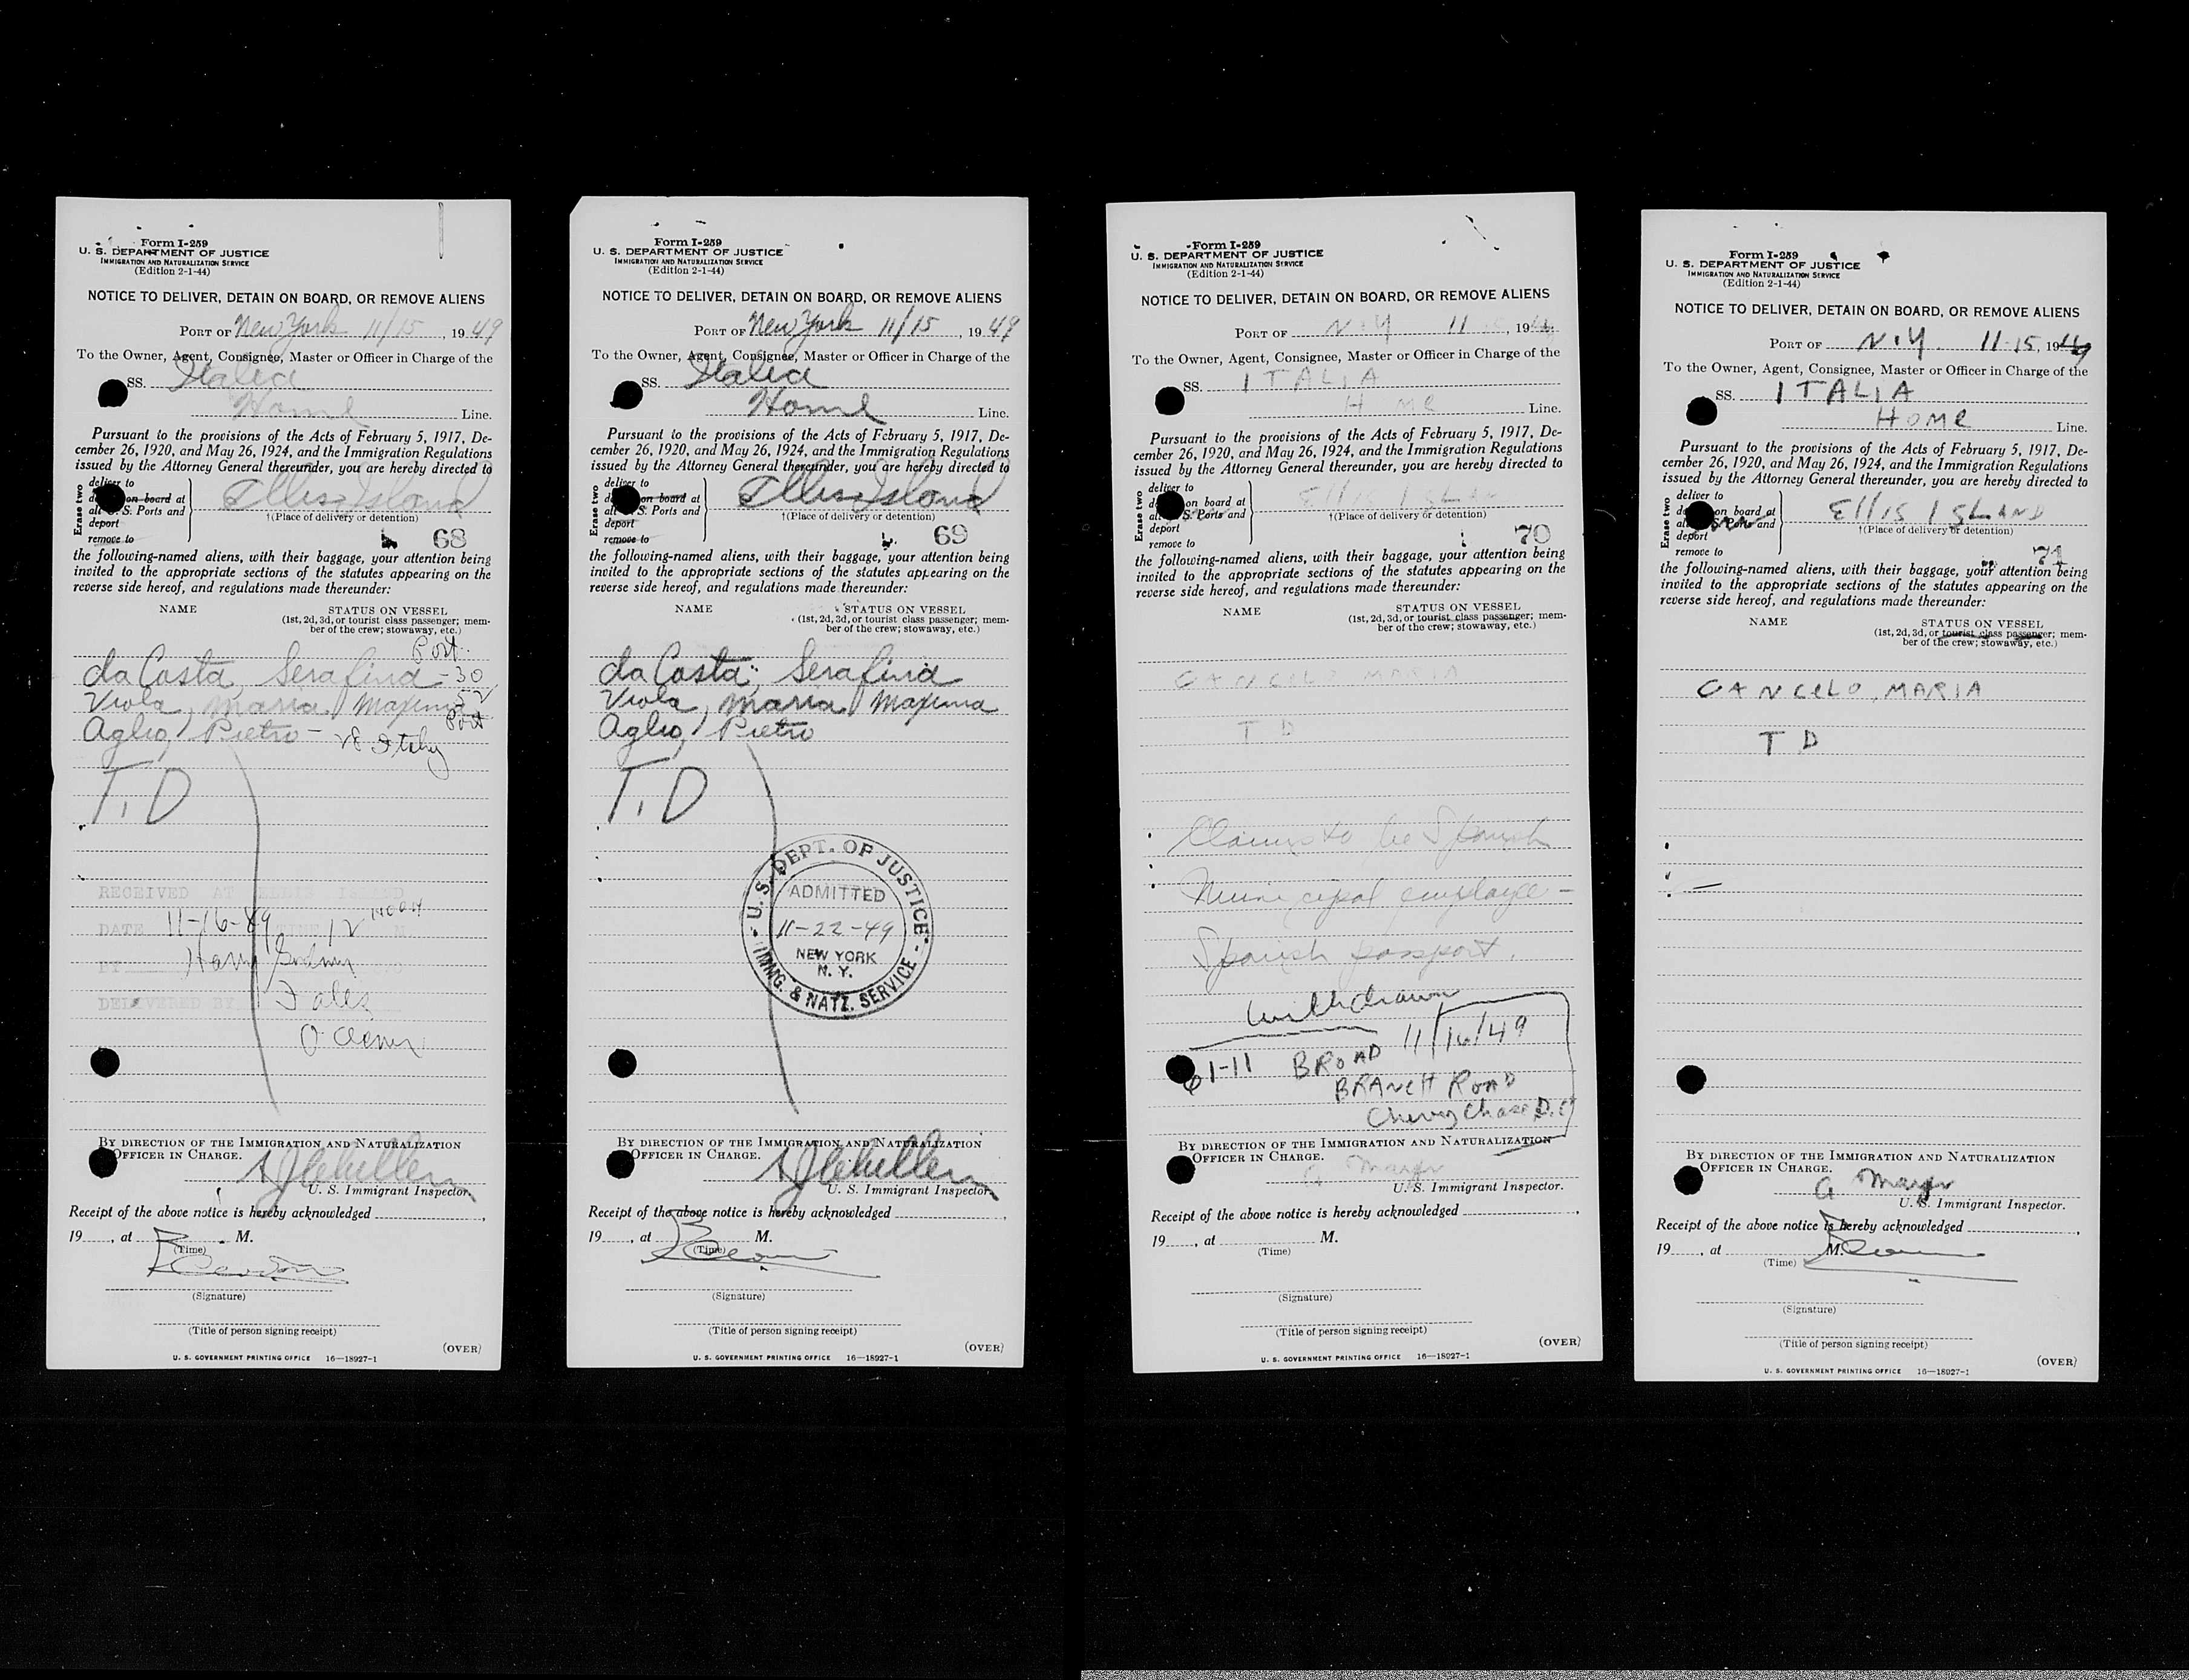 Form I-259
U. S. DEPARTMENT OF JUSTICE
IMMIGRATION AND NATURALIZATION SERVICE
(Edition 2-1-44)
NOTICE TO DELIVER, DETAIN ON BOARD, OR REMOVE ALIENS
PORT OF New York 11/15, 1949
To the Owner, Agent, Consignee, Master or Officer in Charge of the
SS. Italia
Home Line.
Pursuant to the provisions of the Acts of February 5, 1917, De-
cember 26, 1920, and May 26, 1924, and the Immigration Regulations
issued by the Attorney General thereunder, you are hereby directed to
Erase two
deliver to
on board at
S. Ports and
deport
remove to
Ellis Island
†(Place of delivery or detention)
68
the following-named aliens, with their baggage, your attention being
invited to the appropriate sections of the statutes appearing on the
reverse side hereof, and regulations made thereunder:
NAME STATUS ON VESSEL
(1st, 2d, 3d, or tourist class passenger; mem-
ber of the crew; stowaway, etc.)
Port.
da Costa, Serafina - 30
Viola, Maria Maxima 52
Port
Aglio, Pietro - 28 Italy
T. D
RECEIVED AT ELLIS ISLAND
DATE 11-16-49 TIME 12 NOON M.
BY Harry
DELIVERED BY
BY DIRECTION OF THE IMMIGRATION AND NATURALIZATION
OFFICER IN CHARGE.
U. S. Immigrant Inspector.
Receipt of the above notice is hereby acknowledged
19, at M.
(Time)
(Signature)
(Title of person signing receipt)
(OVER)
U. S. GOVERNMENT PRINTING OFFICE 16—18927-1
Form I-259
U. S. DEPARTMENT OF JUSTICE
IMMIGRATION AND NATURALIZATION SERVICE
(Edition 2-1-44)
NOTICE TO DELIVER, DETAIN ON BOARD, OR REMOVE ALIENS
PORT OF New York 11/15, 1949
To the Owner, Agent, Consignee, Master or Officer in Charge of the
SS. Italia
Home Line.
Pursuant to the provisions of the Acts of February 5, 1917, De-
cember 26, 1920, and May 26, 1924, and the Immigration Regulations
issued by the Attorney General thereunder, you are hereby directed to
Erase two
deliver to
on board at
S. Ports and
deport
remove to
Ellis Island
†(Place of delivery or detention)
69
the following-named aliens, with their baggage, your attention being
invited to the appropriate sections of the statutes appearing on the
reverse side hereof, and regulations made thereunder:
NAME STATUS ON VESSEL
(1st, 2d, 3d, or tourist class passenger; mem-
ber of the crew; stowaway, etc.)
da Costa, Serafina
Viola, Maria Maxima
Aglio, Pietro
T. D
U. S. DEPT. OF JUSTICE
ADMITTED
11-22-49
NEW YORK
N. Y.
IMMG. & NATZ. SERVICE
BY DIRECTION OF THE IMMIGRATION AND NATURALIZATION
OFFICER IN CHARGE.
U. S. Immigrant Inspector.
Receipt of the above notice is hereby acknowledged
19, at M.
(Time)
(Signature)
(Title of person signing receipt)
(OVER)
U. S. GOVERNMENT PRINTING OFFICE 16—18927-1
Form I-259
U. S. DEPARTMENT OF JUSTICE
IMMIGRATION AND NATURALIZATION SERVICE
(Edition 2-1-44)
NOTICE TO DELIVER, DETAIN ON BOARD, OR REMOVE ALIENS
PORT OF N.Y 11 , 19
To the Owner, Agent, Consignee, Master or Officer in Charge of the
SS. ITALIA
HOME Line.
Pursuant to the provisions of the Acts of February 5, 1917, De-
cember 26, 1920, and May 26, 1924, and the Immigration Regulations
issued by the Attorney General thereunder, you are hereby directed to
Erase two
deliver to
on board at
S. Ports and
deport
remove to
Ellis ISLAND
†(Place of delivery or detention)
70
the following-named aliens, with their baggage, your attention being
invited to the appropriate sections of the statutes appearing on the
reverse side hereof, and regulations made thereunder:
NAME STATUS ON VESSEL
(1st, 2d, 3d, or tourist class passenger; mem-
ber of the crew; stowaway, etc.)
CANCELO, MARIA
T D
Claims to be Spanish
Municipal employee -
Spanish passport.
Withdrawn
11/16/49
61-11 BROAD
BRANCH ROAD
Chevy Chase D.C
BY DIRECTION OF THE IMMIGRATION AND NATURALIZATION
OFFICER IN CHARGE.
a Mayer
U. S. Immigrant Inspector.
Receipt of the above notice is hereby acknowledged
19, at M.
(Time)
(Signature)
(Title of person signing receipt)
(OVER)
U. S. GOVERNMENT PRINTING OFFICE 16—18927-1
Form I-259
U. S. DEPARTMENT OF JUSTICE
IMMIGRATION AND NATURALIZATION SERVICE
(Edition 2-1-44)
NOTICE TO DELIVER, DETAIN ON BOARD, OR REMOVE ALIENS
PORT OF N.Y. 11-15, 1949
To the Owner, Agent, Consignee, Master or Officer in Charge of the
SS. ITALIA
HOME Line.
Pursuant to the provisions of the Acts of February 5, 1917, De-
cember 26, 1920, and May 26, 1924, and the Immigration Regulations
issued by the Attorney General thereunder, you are hereby directed to
Erase two
deliver to
on board at
S. Ports and
deport
remove to
Ellis ISLAND
†(Place of delivery or detention)
71
the following-named aliens, with their baggage, your attention being
invited to the appropriate sections of the statutes appearing on the
reverse side hereof, and regulations made thereunder:
NAME STATUS ON VESSEL
(1st, 2d, 3d, or tourist class passenger; mem-
ber of the crew; stowaway, etc.)
CANCELO, MARIA
T D
BY DIRECTION OF THE IMMIGRATION AND NATURALIZATION
OFFICER IN CHARGE.
a Mayer
U. S. Immigrant Inspector.
Receipt of the above notice is hereby acknowledged
19, at M.
(Time)
(Signature)
(Title of person signing receipt)
(OVER)
U. S. GOVERNMENT PRINTING OFFICE 16—18927-1